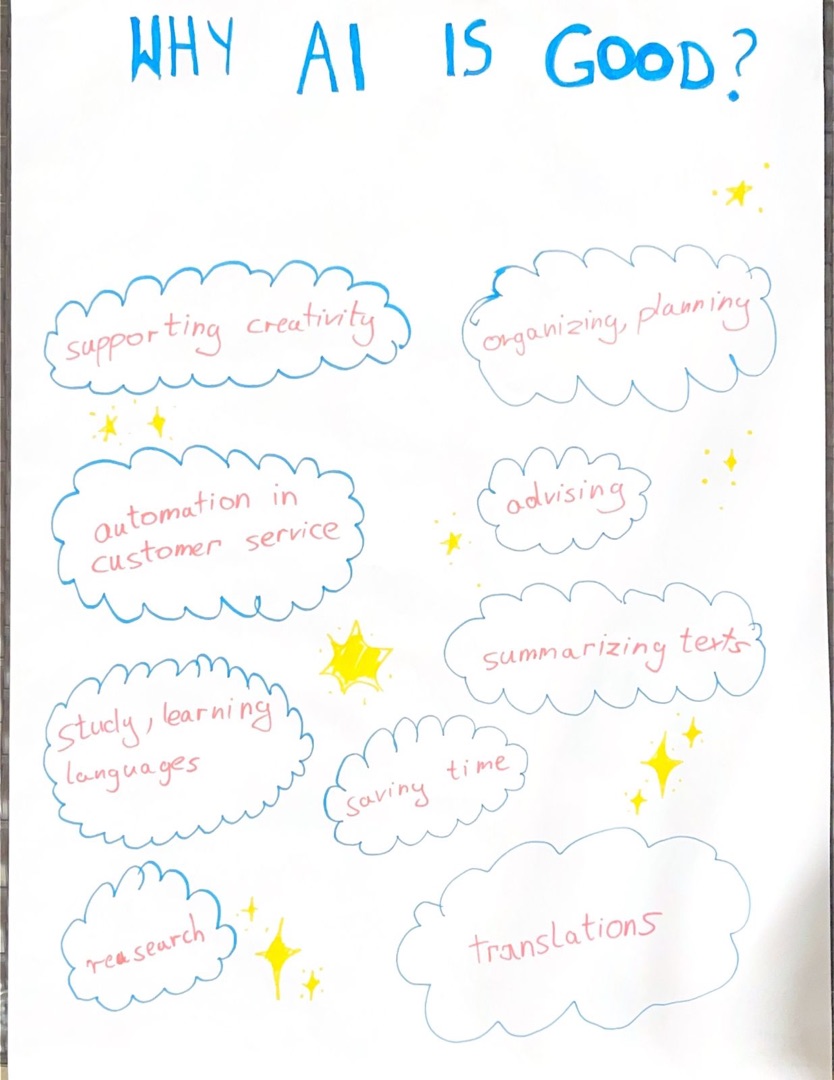 WHY AI IS GOOD?
supporting creativity
organizing, planning
automation in
customer service
advising
summarizing texts
study, learning
languages
saving time
reasearch
translations